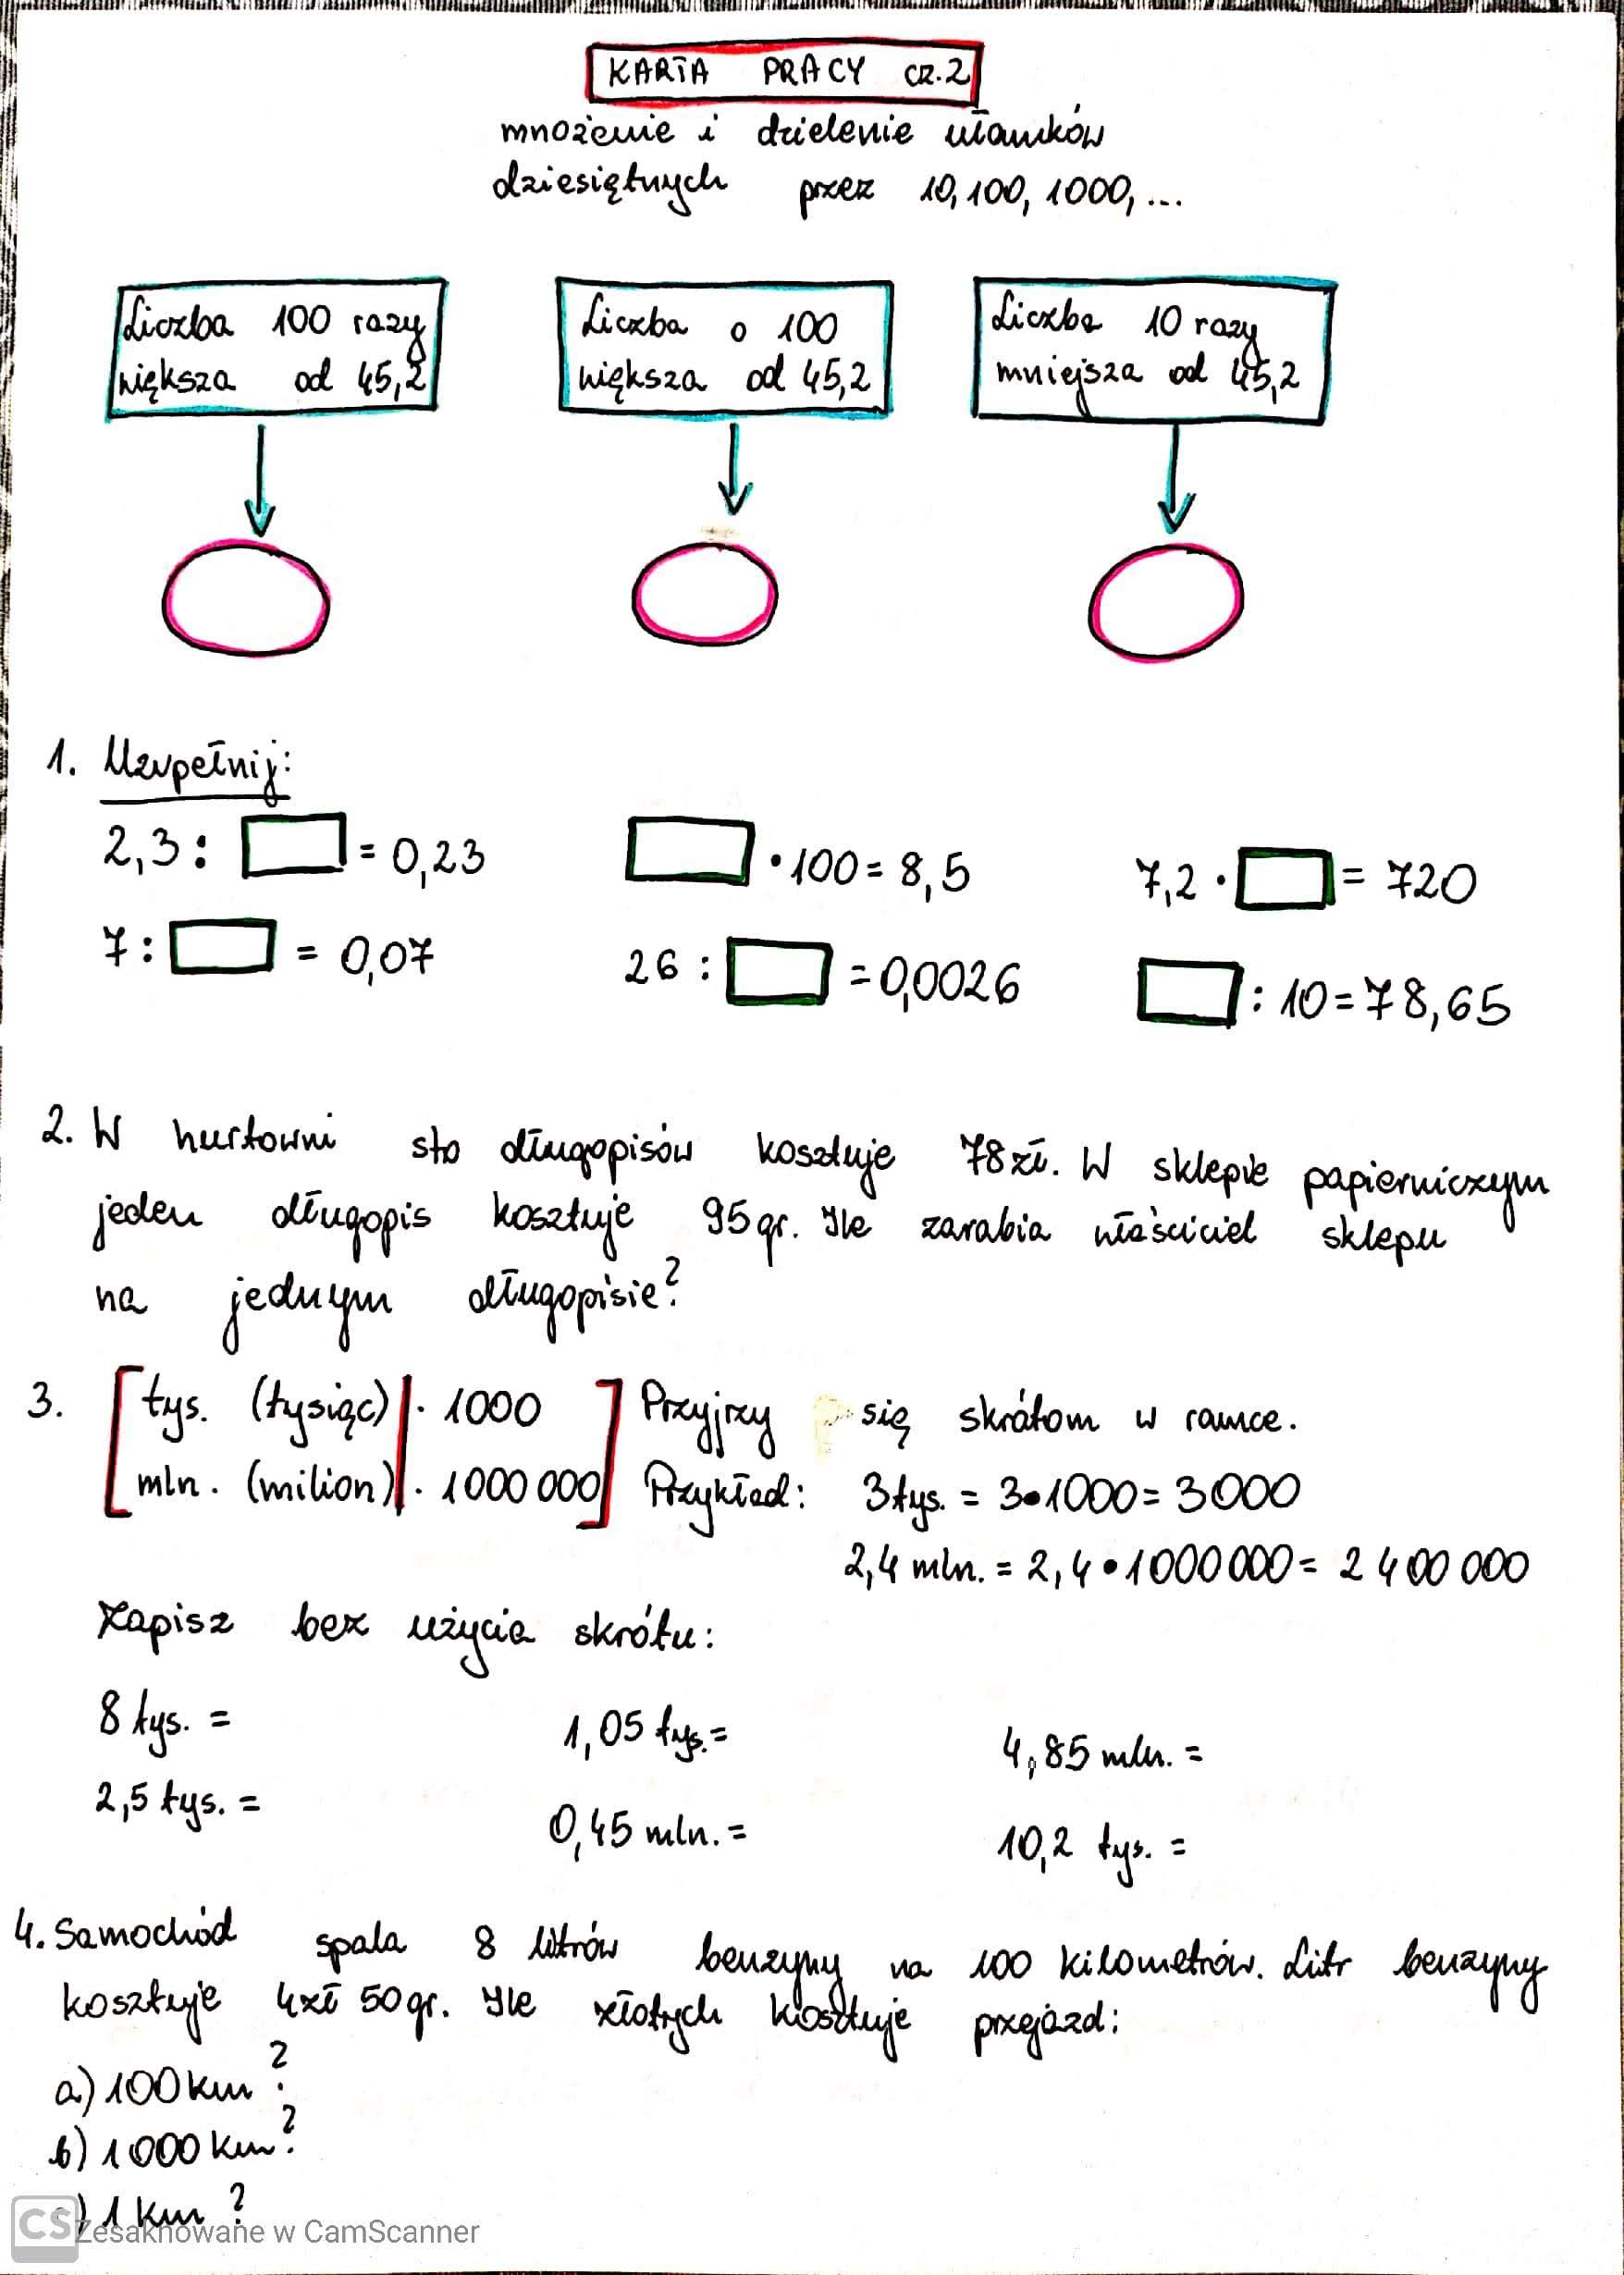 KARTA PRACY cz.2
mnożenie i dzielenie ułamków
dziesiętnych przez 10, 100, 1000, ...
Liczba 100 razy
większa od 45,2
Liczba o 100
większa od 45,2
Liczba 10 razy
mniejsza od 45,2
1. Uzupełnij:
2,3 : = 0,23
· 100 = 8,5
7,2 · = 720
7 : = 0,07
26 : = 0,0026
: 10 = 78,65
2. W hurtowni sto długopisów kosztuje 78 zł. W sklepie papierniczym
jeden długopis kosztuje 95 gr. Ile zarabia właściciel sklepu
na jednym długopisie?
3. tys. (tysiąc) · 1000 Przyjrzy się skrótom w ramce.
mln. (milion) · 1000 000 Przykład: 3 tys. = 3 • 1000 = 3000
2,4 mln. = 2,4 • 1000 000 = 2 400 000
Zapisz bez użycia skrótu:
8 tys. =
1,05 tys. =
4,85 mln. =
2,5 tys. =
0,45 mln. =
10,2 tys. =
4. Samochód spala 8 litrów benzyny na 100 kilometrów. Litr benzyny
kosztuje 4 zł 50 gr. Ile złotych kosztuje przejazd:
a) 100 km ?
b) 1000 km ?
c) 1 km ?
CS Zeskanowane w CamScanner